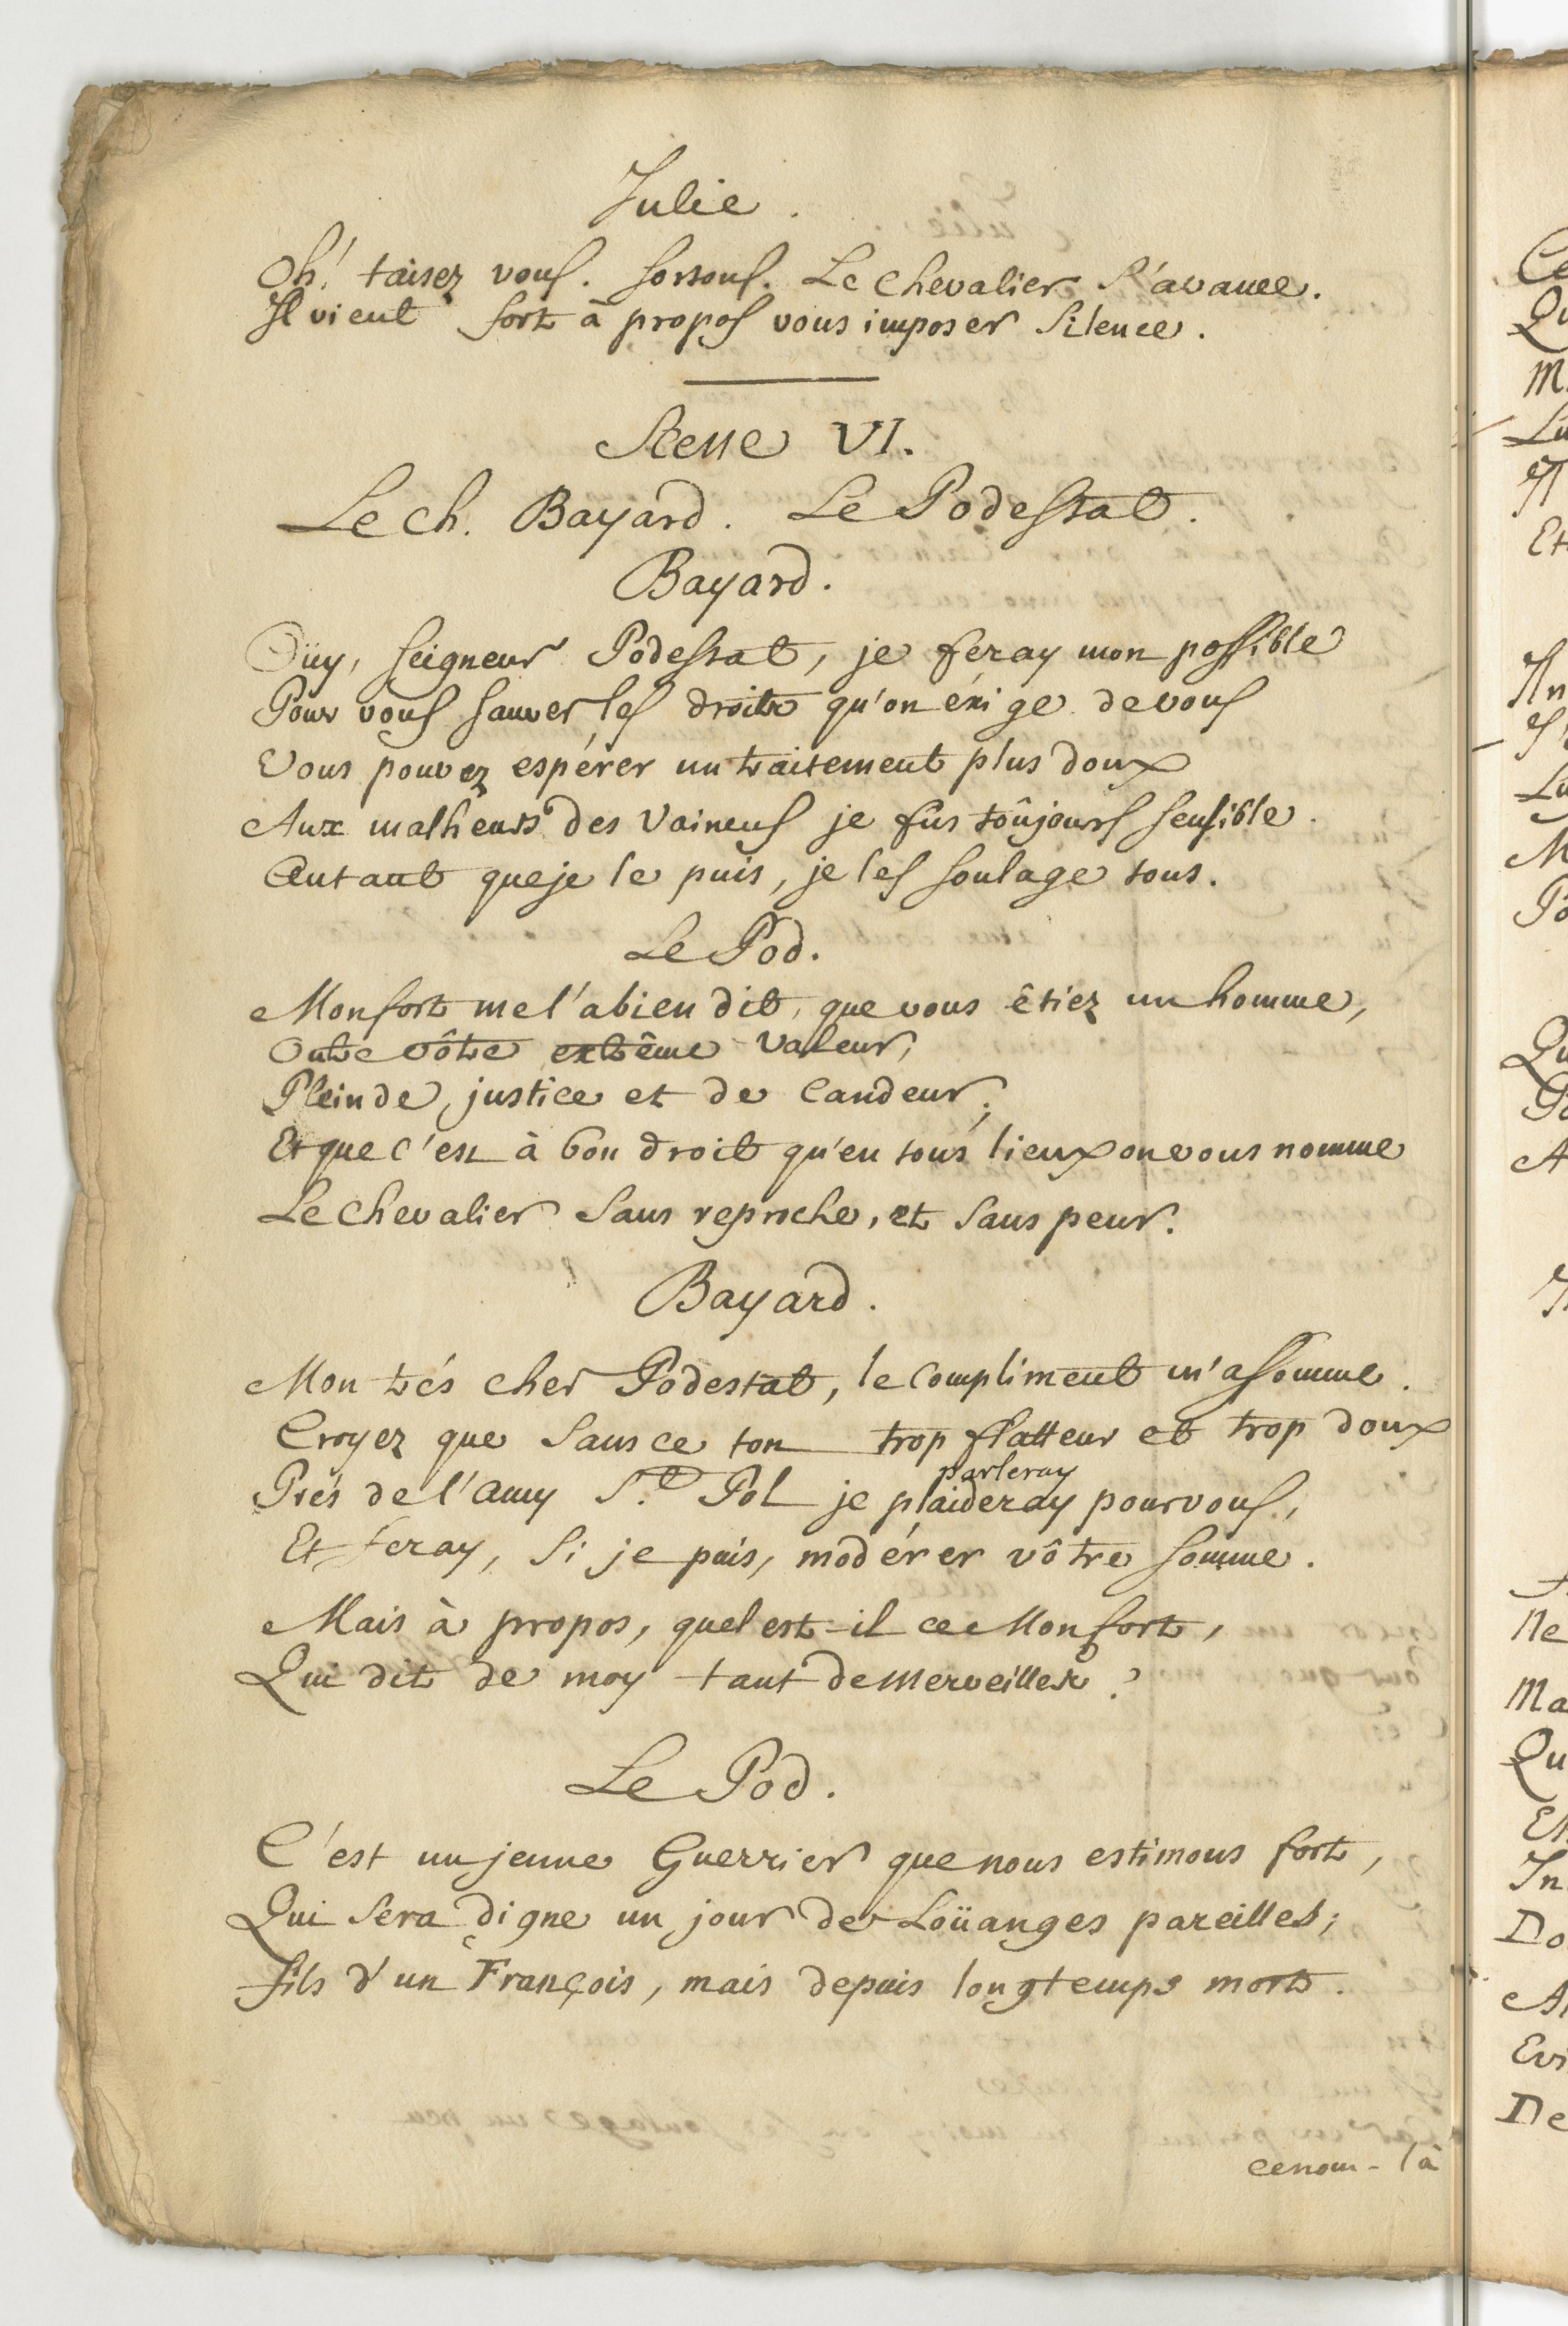 Julie.
Oh! taisez vous. sortons. Le Chevalier s'avance.
Il vient fort à propos vous imposer silence.
Scene VI.
Le Ch. Bayard. Le Podestat.
Bayard.
Oüy, seigneur Podestat, je feray mon possible
Pour vous sauver les droits qu'on éxige de vous
Vous pouvez espérer un traitement plus doux
Aux malheurs des vaincus je fus toûjours sensible.
Autant que je le puis, je les soulage tous.
Le Pod.
Monfort me l'a bien dit, que vous êtiez un homme,
Outre vôtre extrême valeur,
Plein de justice et de candeur;
Et que c'est à bon droit qu'en tous lieux on vous nomme
Le Chevalier sans reproche, et sans peur.
Bayard.
Mon trés cher Podestat, le compliment m'assomme.
Croyez que sans ce ton trop flatteur et trop doux
parleray
Prés de l'amy St. Pol je plaideray pour vous,
Et feray, si je puis, modérer vôtre somme.
Mais à propos, quel est-il ce Monfort,
Qui dit de moy tant de merveilles?
Le Pod.
C'est un jeune Guerrier que nous estimons fort,
Qui sera digne un jour de Loüanges pareilles;
fils d'un François, mais depuis longtemps mort.
ce nom-là